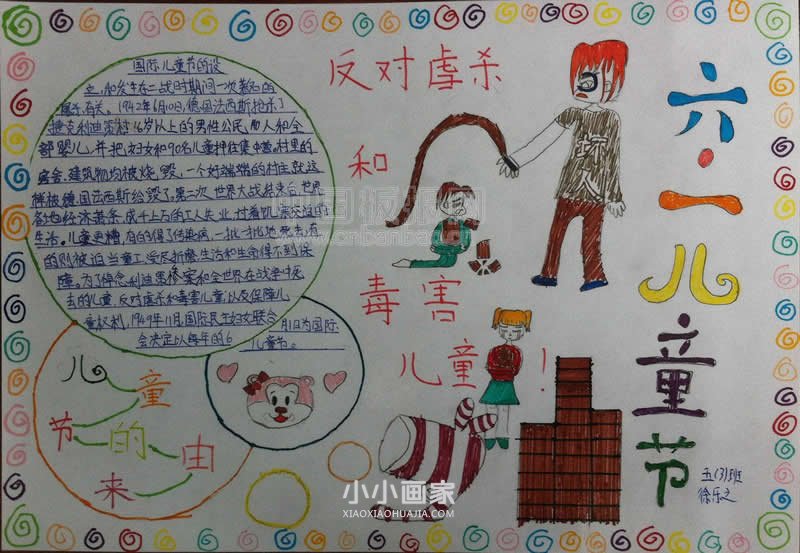 国际儿童节的设
立，和发生在二战时期间一次著名的
屠杀有关。1942年6月10日，德国法西斯枪杀了
捷克利迪策村16岁以上的男性公民
部婴儿，并把妇女和90名儿童押往集中营。村里的
房舍、建筑物均被烧毁，一个好端端的村庄就这
样被德国法西斯给毁了。第二次世界大战结束后，世界
各地经济萧条，成千上万的工人失业，过着饥寒交迫的
生活。儿童更糟，有的得了传染病，一批批地死去；有
的则被迫当童工，受尽折磨，生活和生命得不到保
障。为了悼念利迪策惨案和全世界在战争中死
去的儿童，反对虐杀和毒害儿童，以及保障儿
童权利，1949年11月，国际民主妇女联合
会决定以每年的6
月1日为国际
儿童节。
儿童
节的由
来
反对虐杀
和
毒害
儿童！
坏人
六·一儿童节
五(3)班
徐乐之
中国板报网
www.cnbanbao.cn
小小画家
XIAOXIAOHUAJIA.COM